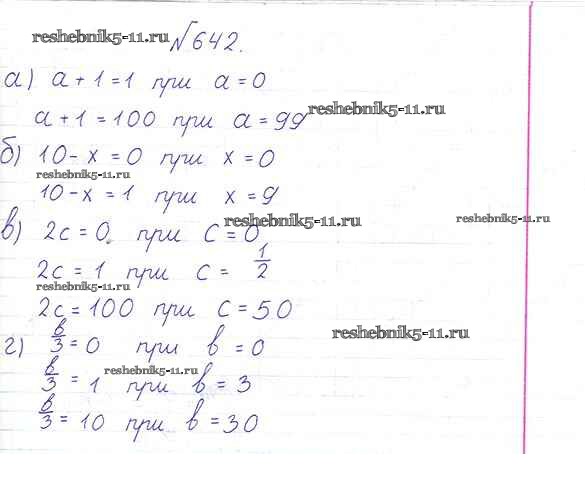 reshebnik5-11.ru
№642.
а) a + 1 = 1 при a = 0
a + 1 = 100 при a = 99
reshebnik5-11.ru
б) 10 - x = 0 при x = 0
reshebnik5-11.ru
10 - x = 1 при x = 9
reshebnik5-11.ru
reshebnik5-11.ru
в) 2c = 0 при c = 0
2c = 1 при c = 1/2
reshebnik5-11.ru
2c = 100 при c = 50
reshebnik5-11.ru
г) b/3 = 0 при b = 0
reshebnik5-11.ru
b/3 = 1 при b = 3
b/3 = 10 при b = 30